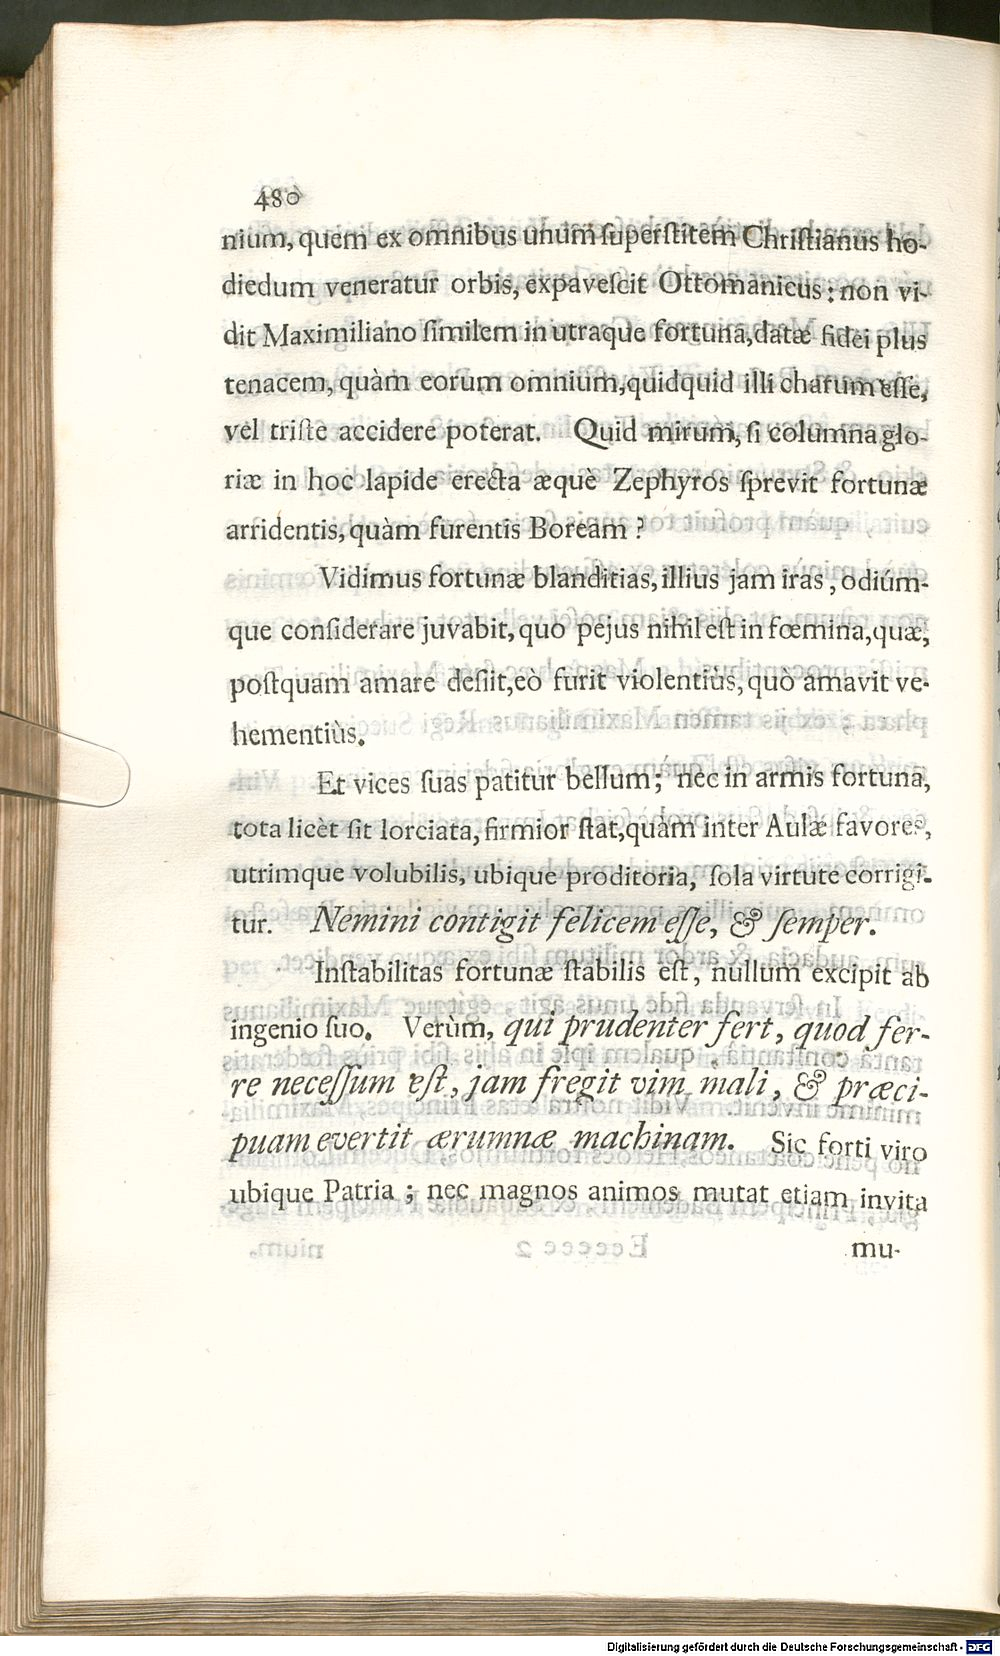 480
nium, quem ex omnibus unum ſuperſtitem Chriſtianus ho-
diedum veneratur orbis, expaveſcit Ottomanicus: non vi-
dit Maximiliano ſimilem in utraque fortunâ, datæ fidei plus
tenacem, quàm eorum omnium, quidquid illi charum eſſe,
vel triſte accidere poterat. Quid mirum, ſi columna glo-
riæ in hoc lapide erecta æquè Zephyros ſprevit fortunæ
arridentis, quàm furentis Boream?
Vidimus fortunæ blanditias, illius jam iras, odiúm-
que conſiderare juvabit, quo pejus nihil eſt in fœmina, quæ,
poſtquam amare deſiit, eò furit violentiùs, quò amavit ve-
hementiùs.
Et vices ſuas patitur bellum; nec in armis fortuna,
tota licèt ſit loricata, firmior ſtat, quàm inter Aulæ favores,
utrimque volubilis, ubique proditoria, ſola virtute corrigi-
tur. Nemini contigit felicem eſſe, & ſemper.
Inſtabilitas fortunæ ſtabilis eſt, nullum excipit ab
ingenio ſuo. Verùm, qui prudenter fert, quod fer-
re neceſſum eſt, jam fregit vim mali, & præci-
puam evertit ærumnæ machinam. Sic forti viro
ubique Patria; nec magnos animos mutat etiam invita
mu-
Digitalisierung gefördert durch die Deutsche Forschungsgemeinschaft - DFG